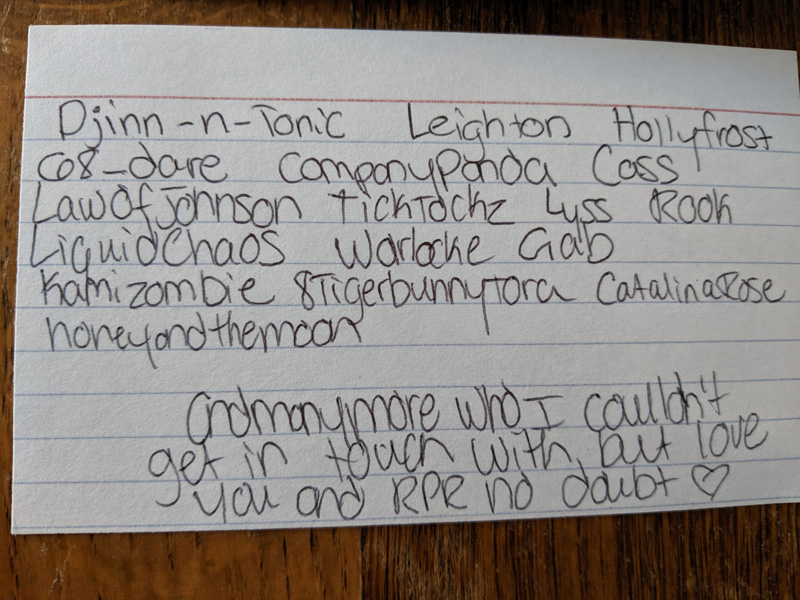 Djinn-n-Tonic Leighton Hollyfrost
co8_dare CompanyPanda Cass
LawOfJohnson TickTockz Lyss Rook
LiquidChaos Warlocke Gab
Kamizombie 8Tigerbunnytora CatalinaRose
honeyandthemoon
And many more who I couldn't
get in touch with, but love
you and RPR no doubt ♡